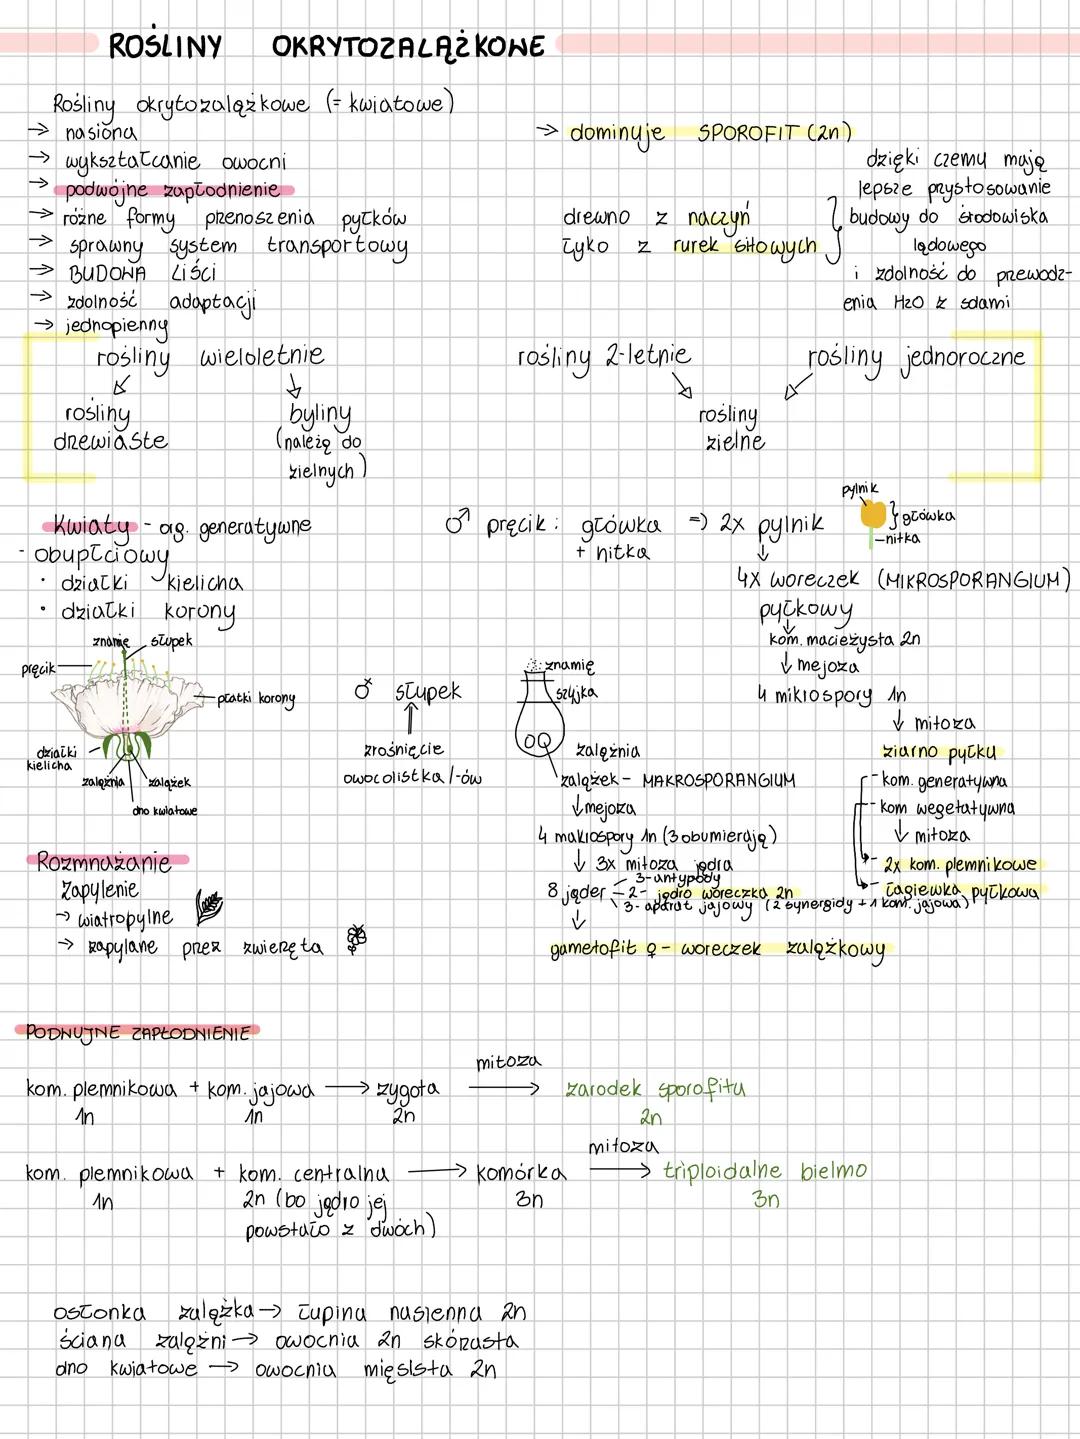 ROŚLINY OKRYTOZALĄŻKOWE
Rośliny okrytozalążkowe (= kwiatowe)
→ nasiona
→ wykształcanie owocni
→ podwójne zapłodnienie
→ różne formy przenoszenia pyłków
→ sprawny system transportowy
→ BUDOWA LIŚCI
→ zdolność adaptacji
→ jednopienny
→ dominuje SPOROFIT (2n)
drewno z naczyń
łyko z rurek sitowych
dzięki czemu mają
lepsze prystosowanie
budowy do środowiska
lądowego
i zdolność do przewodz-
enia H2O z solami
rośliny wieloletnie
rośliny 2-letnie
rośliny jednoroczne
rośliny
drzewiaste
byliny
(należą do
zielnych)
rośliny
zielne
Kwiaty - org. generatywne
- obupłciowy
• działki kielicha
• działki korony
znamię
słupek
pręcik
płatki korony
działki
kielicha
zalążnia
zalążek
dno kwiatowe
♂ pręcik: główka => 2x pylnik
+ nitka
pylnik
główka
nitka
↓
4x woreczek (MIKROSPORANGIUM)
pyłkowy
↓
kom. macieżysta 2n
↓ mejoza
4 mikrospory 1n
↓ mitoza
ziarno pyłku
- kom. generatywna
- kom wegetatywna
↓ mitoza
- 2x kom. plemnikowe
- łagiewka pyłkowa
słupek
⇑
zrośnięcie
owocolistka/-ów
znamię
szyjka
zalążnia
zalążek - MAKROSPORANGIUM
↓ mejoza
4 makrospory 1n (3 obumierają)
↓ 3x mitoza jądra
8 jąder
3- antypody
2- jądro woreczka 2n
3- aparat jajowy (2 synergidy + 1 kom. jajowa)
↓
gametofit ♀ - woreczek zalążkowy
Rozmnażanie
Zapylenie
→ wiatropylne
→ zapylane przez zwierzęta
PODWUJNE ZAPŁODNIENIE
kom. plemnikowa + kom. jajowa → zygota mitoza → zarodek sporofitu
1n 1n 2n 2n
kom. plemnikowa + kom. centralna → komórka mitoza → triploidalne bielmo
1n 2n (bo jądro jej 3n 3n
powstało z dwóch)
osłonka zalążka → łupina nasienna 2n
ściana zalążni → owocnia 2n skórzasta
dno kwiatowe → owocnia mięsista 2n